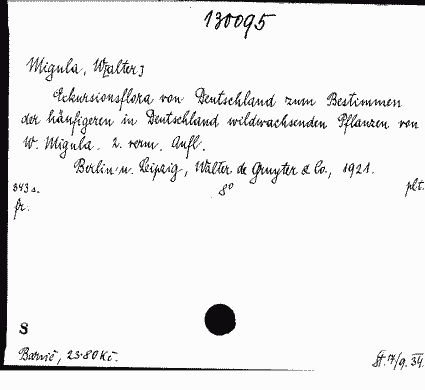 130095
Migula, W[alter]
Exkursionsflora von Deutschland zum Bestimmen
der häufigeren in Deutschland wildwachsenden Pflanzen von
W. Migula. 2. verm. Aufl.
Berlin u. Leipzig, Walter de Gruyter & Co., 1921.
343 s. 8° plt.
fr.
S
Barvič, 23.80 Kč. St. 7/9. 34.